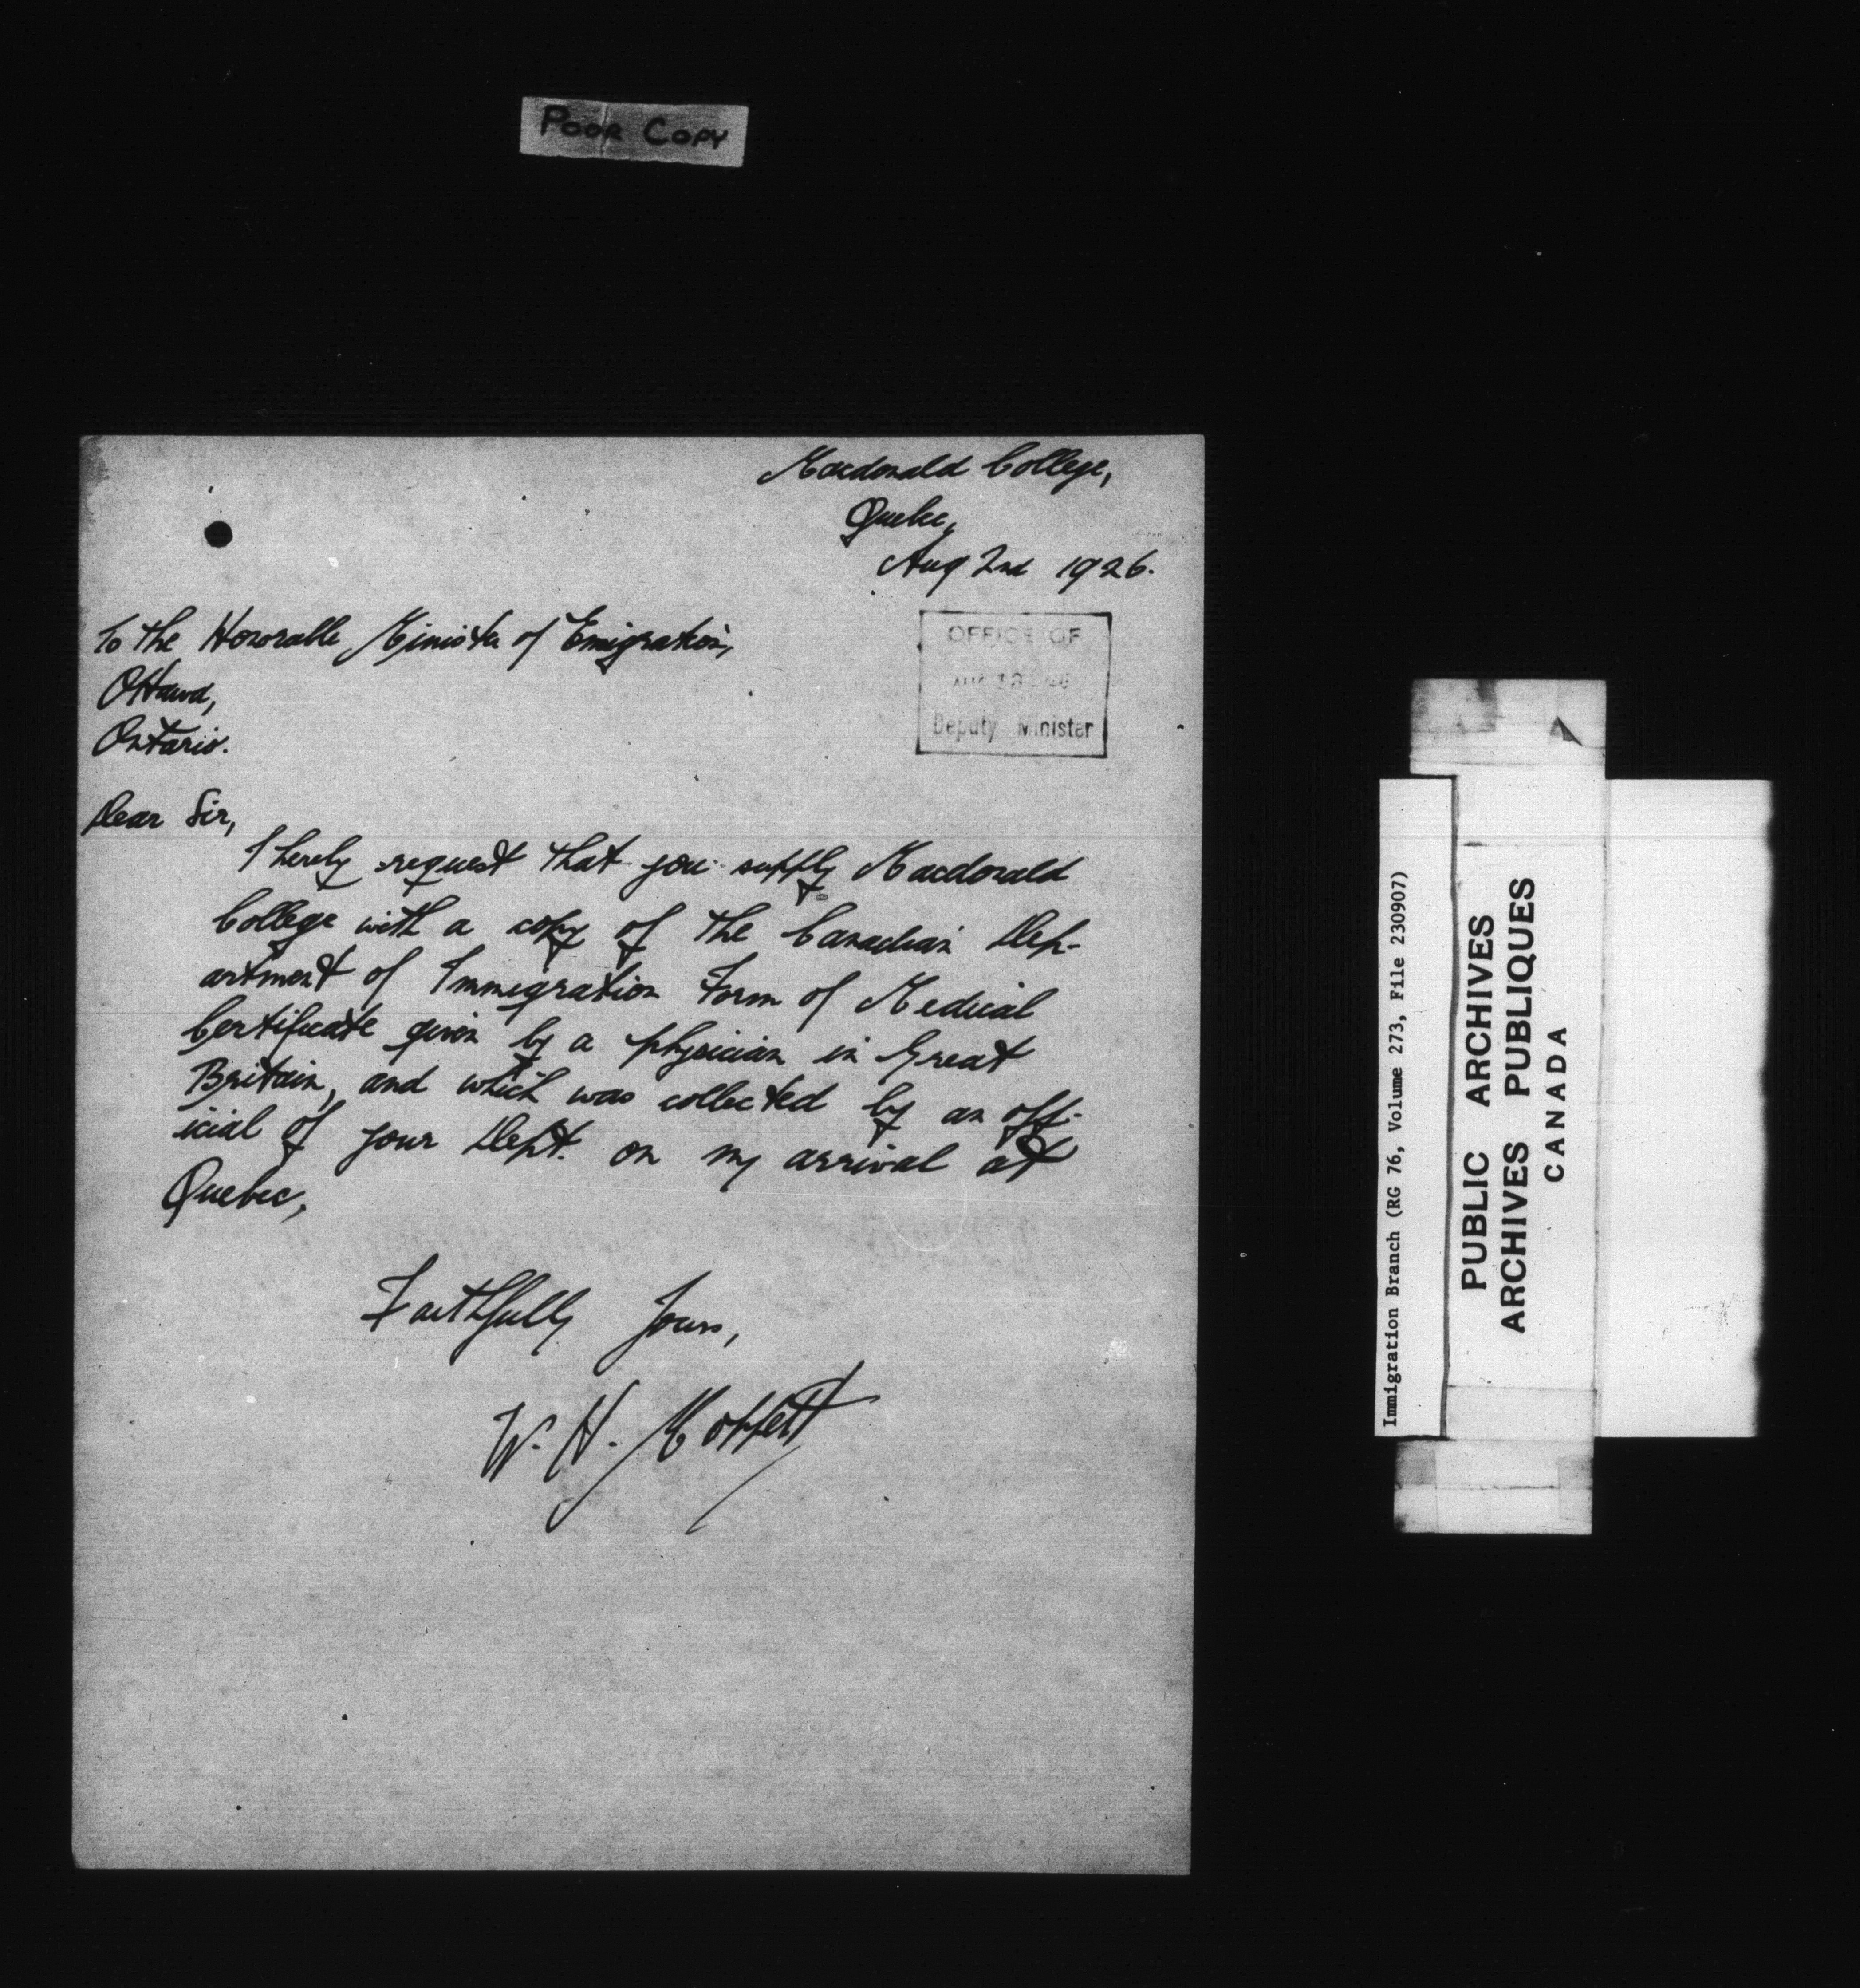 POOR COPY
Macdonald College,
Quebec,
Aug 2nd 1926.
To the Honorable Minister of Emigration,
Ottawa,
Ontario.
OFFICE OF
AUG 18
Deputy Minister
Dear Sir,
I hereby request that you supply Macdonald
College with a copy of the Canadian Dep-
artment of Immigration Form of Medical
Certificate given by a physician in Great
Britain, and which was collected by an off-
icial of your Dept. on my arrival at
Quebec,
Faithfully Yours,
W. H. Moffett
Immigration Branch (RG 76, Volume 273, File 230907)
PUBLIC ARCHIVES
ARCHIVES PUBLIQUES
CANADA